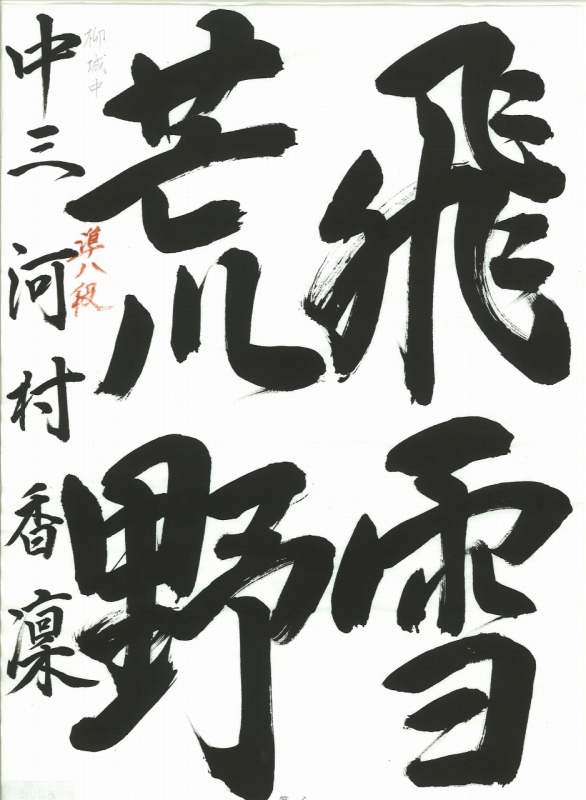 飛雪
荒野
準八段
柳城中
中三 河村香凜